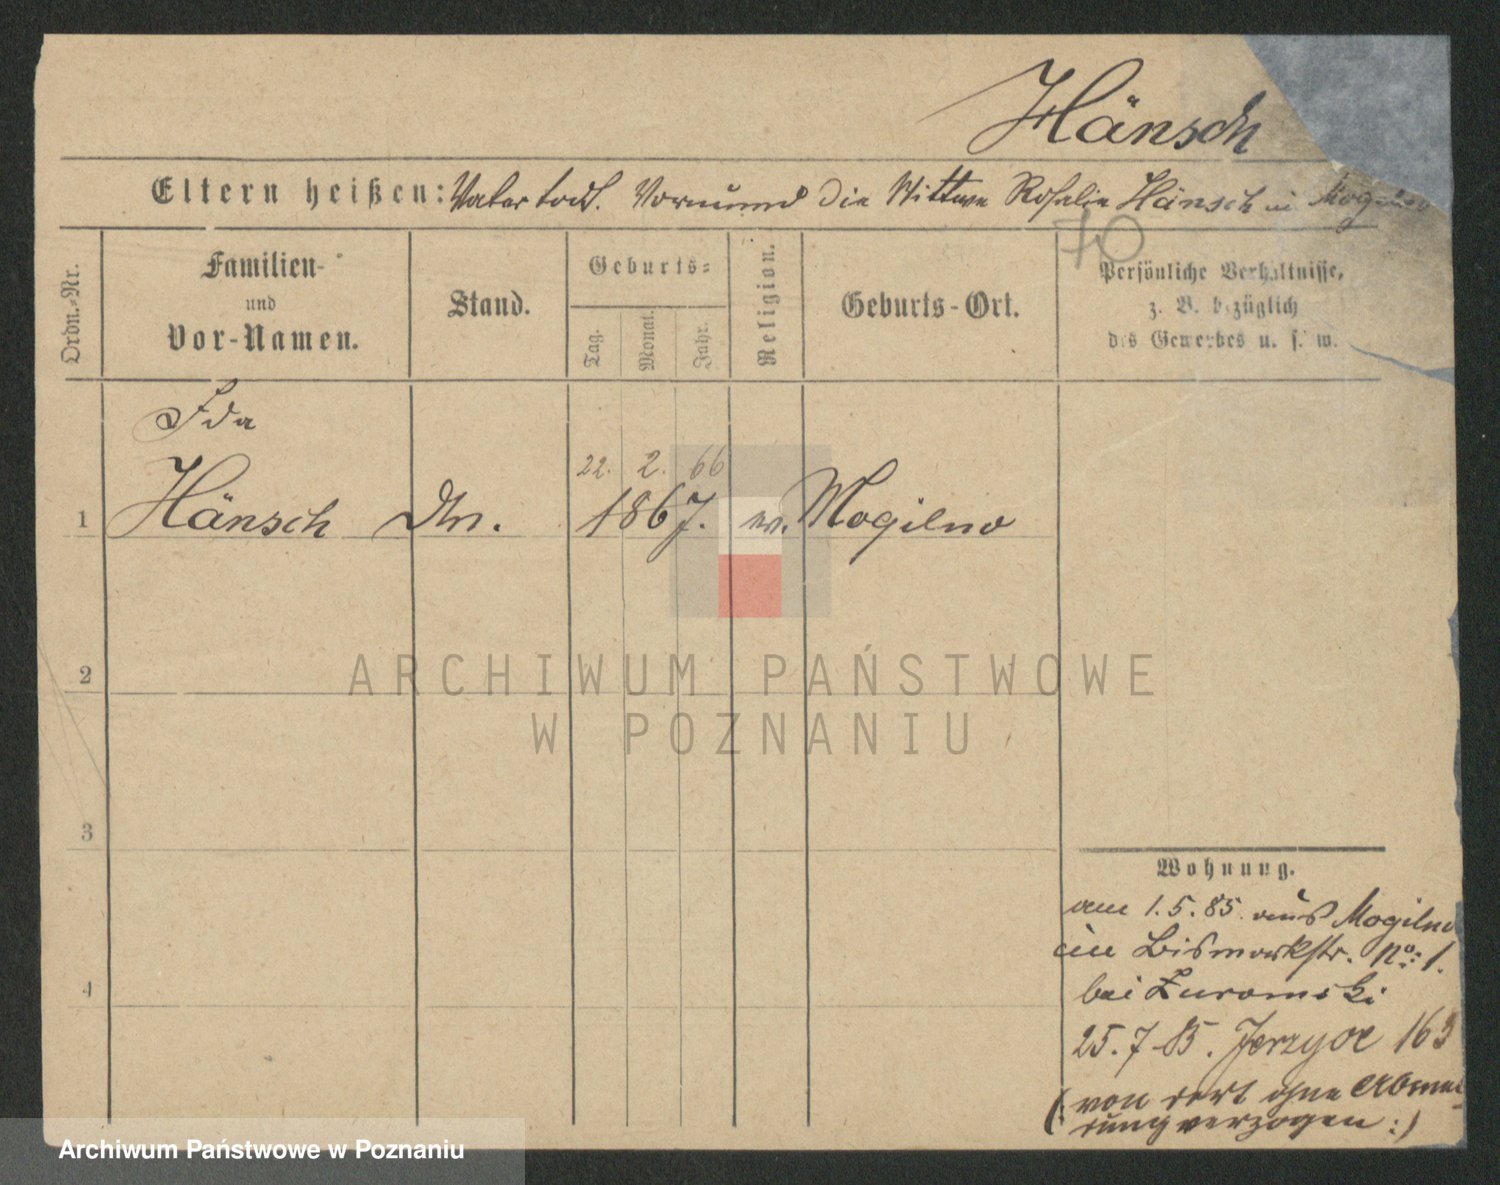 Hänsch
Eltern heißen: Vater todt. Vormund die Wittwe Rosalie Hänsch in Mogilno
70
Ordn.-Nr.
Familien-
und
Vor-Namen.
Stand.
Geburts-
Tag.
Monat.
Jahr.
Religion.
Geburts-Ort.
Persönliche Verhältnisse,
z. B. bezüglich
des Gewerbes u. s. w.
Ida
22. 2. 66
1 Hänsch 1867. ev. Mogilno
2
3
4
ARCHIWUM PAŃSTWOWE
W POZNANIU
Wohnung.
am 1.5.85. aus Mogilno
in Bismarkstr. No: 1.
bei Zuromski
25.7.85. 163
(von dort ohne Abmel
dung verzogen:)
Archiwum Państwowe w Poznaniu